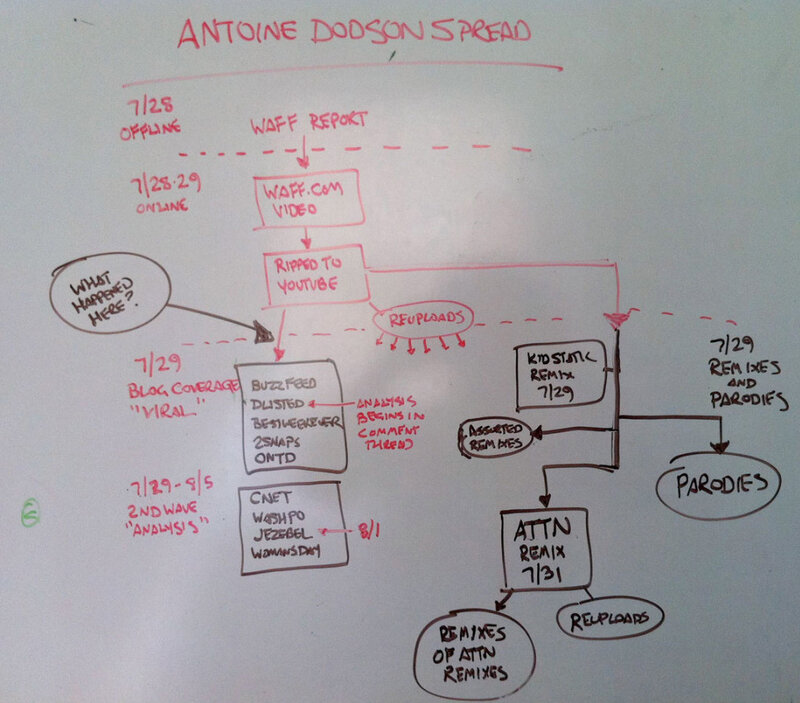 ANTOINE DODSON SPREAD
7/28
OFFLINE
WAFF REPORT
7/28-29
ONLINE
WAFF.COM
VIDEO
RIPPED TO
YOUTUBE
REUPLOADS
WHAT
HAPPENED
HERE?
7/29
BLOG COVERAGE
"VIRAL"
BUZZFEED
DLISTED
BESTWEEKEVER
2SNAPS
ONTD
ANALYSIS
BEGINS IN
COMMENT
THREAD
7/29-8/5
2ND WAVE
"ANALYSIS"
CNET
WASHPO
JEZEBEL
WOMANSDAY
8/1
KIDSTATIC
REMIX
7/29
7/29
REMIXES
AND
PARODIES
ASSORTED
REMIXES
PARODIES
ATTN
REMIX
7/31
REUPLOADS
REMIXES
OF ATTN
REMIXES